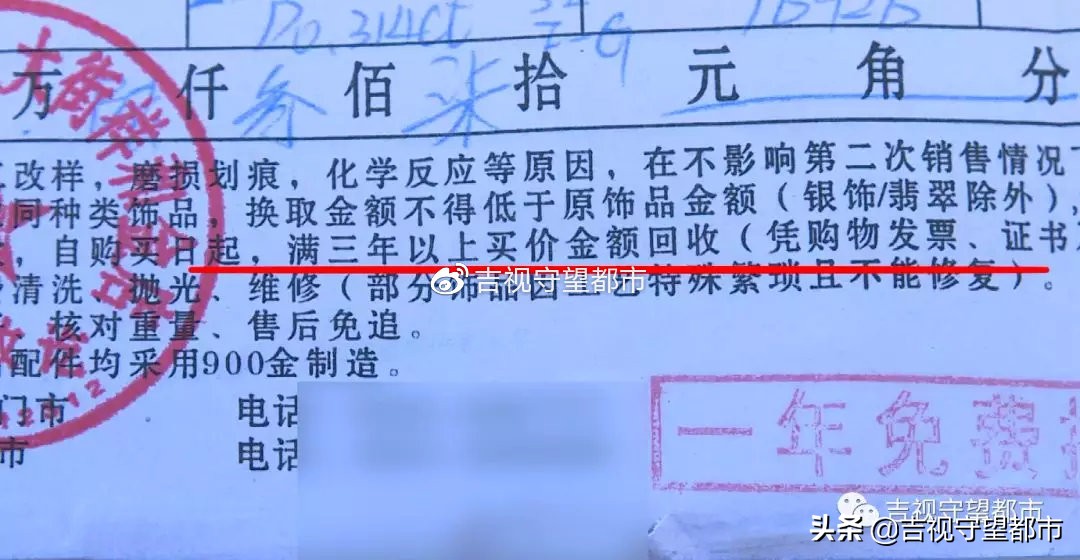 D0.314ct
万 仟 叁 佰 柒 拾 元 角 分
改样，磨损划痕，化学反应等原因，在不影响第二次销售情况下
同种类饰品，换取金额不得低于原饰品金额（银饰/翡翠除外），
，自购买日起，满三年以上买价金额回收（凭购物发票、证书
清洗、抛光、维修（部分饰品因工艺特殊繁琐且不能修复）。
、核对重量、售后免追。
配件均采用900金制造。
门市 电话
市 电话
一年免费
吉视守望都市
吉视守望都市
头条 @吉视守望都市